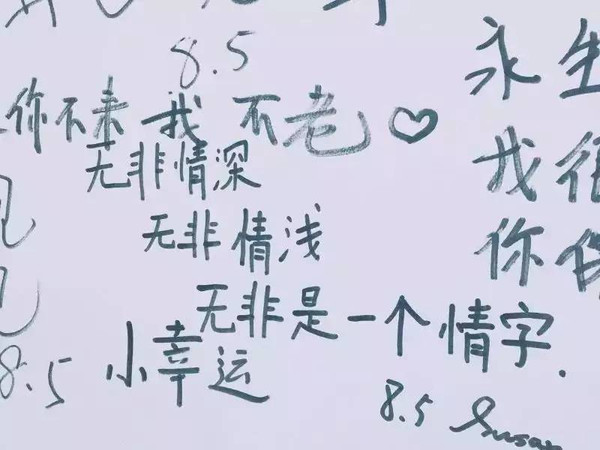 8.5
你不来 我 不老♡
无非情深
无非情浅
无非是一个情字.
8.5 小幸运
8.5 Susan
永生
我很
你